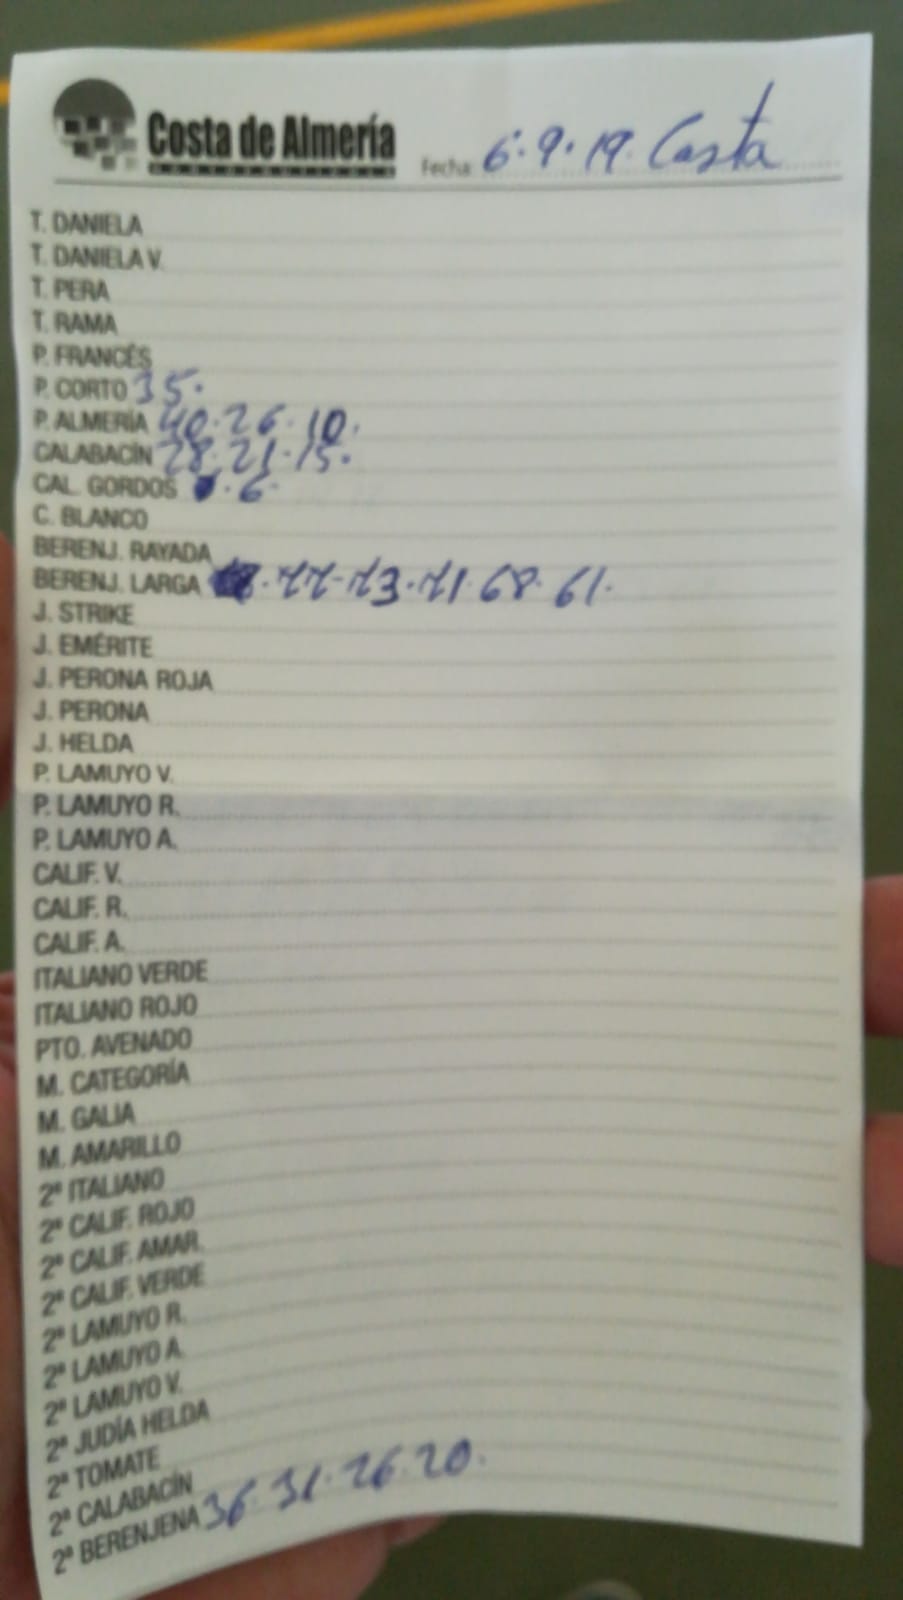 Costa de Almería
Fecha: 6.9.19. Costa
T. DANIELA
T. DANIELA V.
T. PERA
T. RAMA
P. FRANCÉS
P. CORTO 35.
P. ALMERÍA 40.26.10.
CALABACÍN 28.21.15.
CAL. GORDOS .6.
C. BLANCO
BERENJ. RAYADA
BERENJ. LARGA .77-73.71.68.61.
J. STRIKE
J. EMÉRITE
J. PERONA ROJA
J. PERONA
J. HELDA
P. LAMUYO V.
P. LAMUYO R.
P. LAMUYO A.
CALIF. V.
CALIF. R.
CALIF. A.
ITALIANO VERDE
ITALIANO ROJO
PTO. AVENADO
M. CATEGORÍA
M. GALIA
M. AMARILLO
2ª ITALIANO
2ª CALIF. ROJO
2ª CALIF. AMAR.
2ª CALIF. VERDE
2ª LAMUYO R.
2ª LAMUYO A.
2ª LAMUYO V.
2ª JUDÍA HELDA
2ª TOMATE
2ª CALABACÍN
2ª BERENJENA 36.31.26.20.